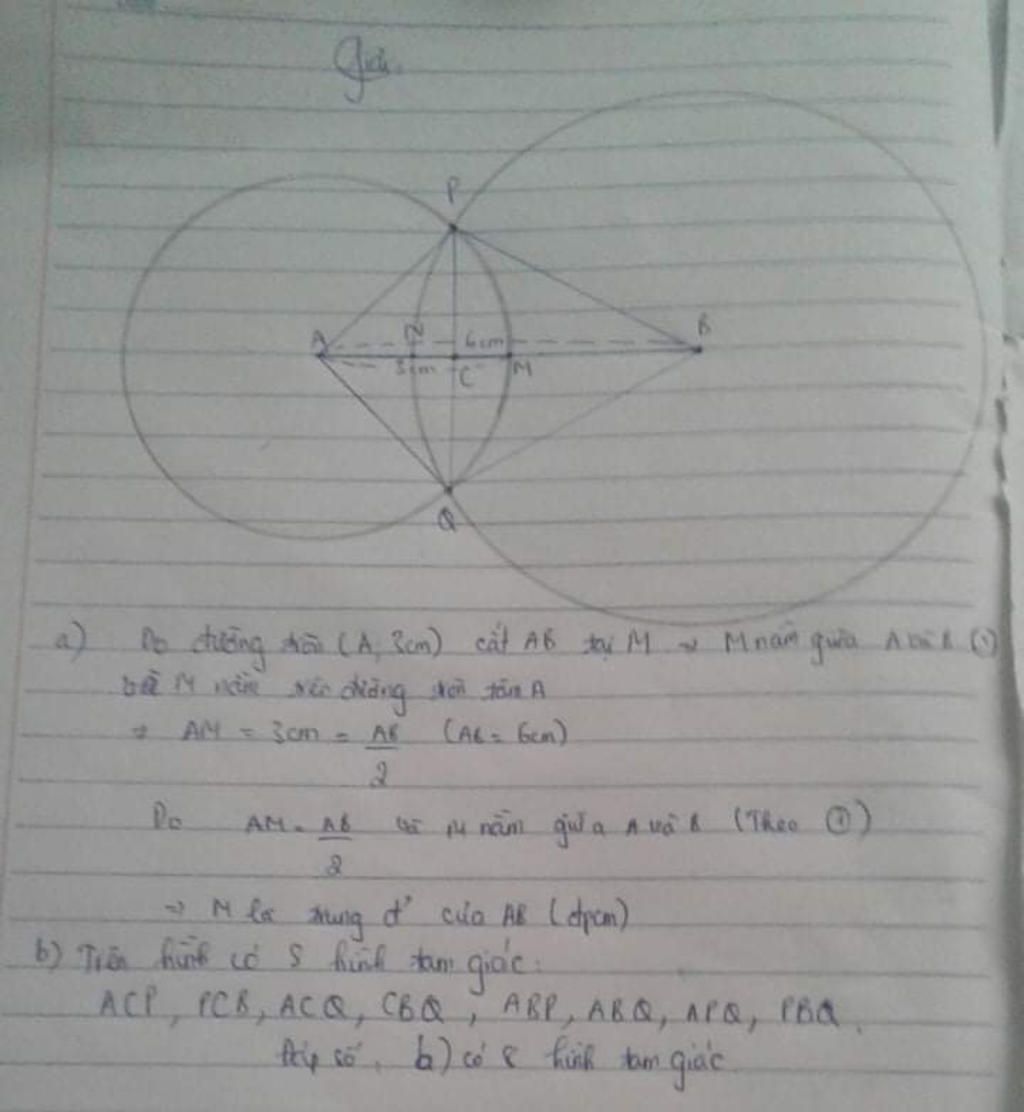 Giải.
P
A N 6cm B
3cm C M
Q
a) Do đường tròn (A, 3cm) cắt AB tại M → M nằm giữa A và B (1)
và M nằm trên đường tròn tâm A
⇒ AM = 3cm = AB/2 (AB = 6cm)
Do AM = AB/2 và M nằm giữa A và B (Theo (1))
→ M là trung đ' của AB (đpcm)
b) Trên hình có 8 hình tam giác:
ACP, PCB, ACQ, CBQ, ABP, ABQ, APQ, PBQ.
Đáp số. b) có 8 hình tam giác